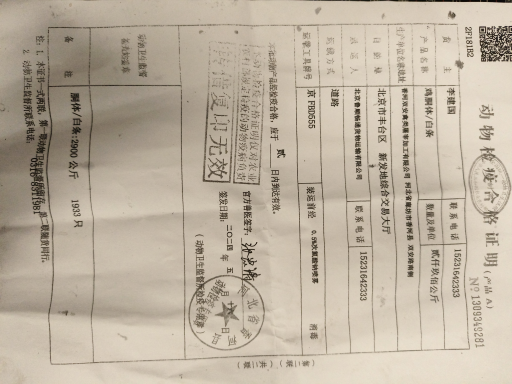 动物检疫合格证明(产品A)
2P181B2
№ 1309349281
货主 李建国 联系电话 15231642333
产品名称 鸡胴体/白条 数量及单位 贰仟玖佰公斤
生产单位名称地址 香河双安禽类屠宰加工有限公司 河北省廊坊市香河县 双安路南侧
目的地 北京市丰台区 新发地综合交易大厅
承运人 北京鲁顺畅通货物运输有限公司 联系电话 15231642333
运载方式 道路
运载工具牌号 京 PBD555 装运前经 0.5%次氯酸钠喷雾 消毒
本批动物产品经检疫合格,应于 贰 日内到达有效。
官方兽医签字:
签发日期:二〇二四 年 五 月
(动物卫生监督所检疫专用章)
转借复印无效
动物卫生监督
备注 胴体/白条:2900 公斤 1933 只
注:1. 本证书一式两联,第一联动物卫生监督所留存,第二联随货同行。
2. 动物卫生监督所联系电话:
(第二联)(共二联)